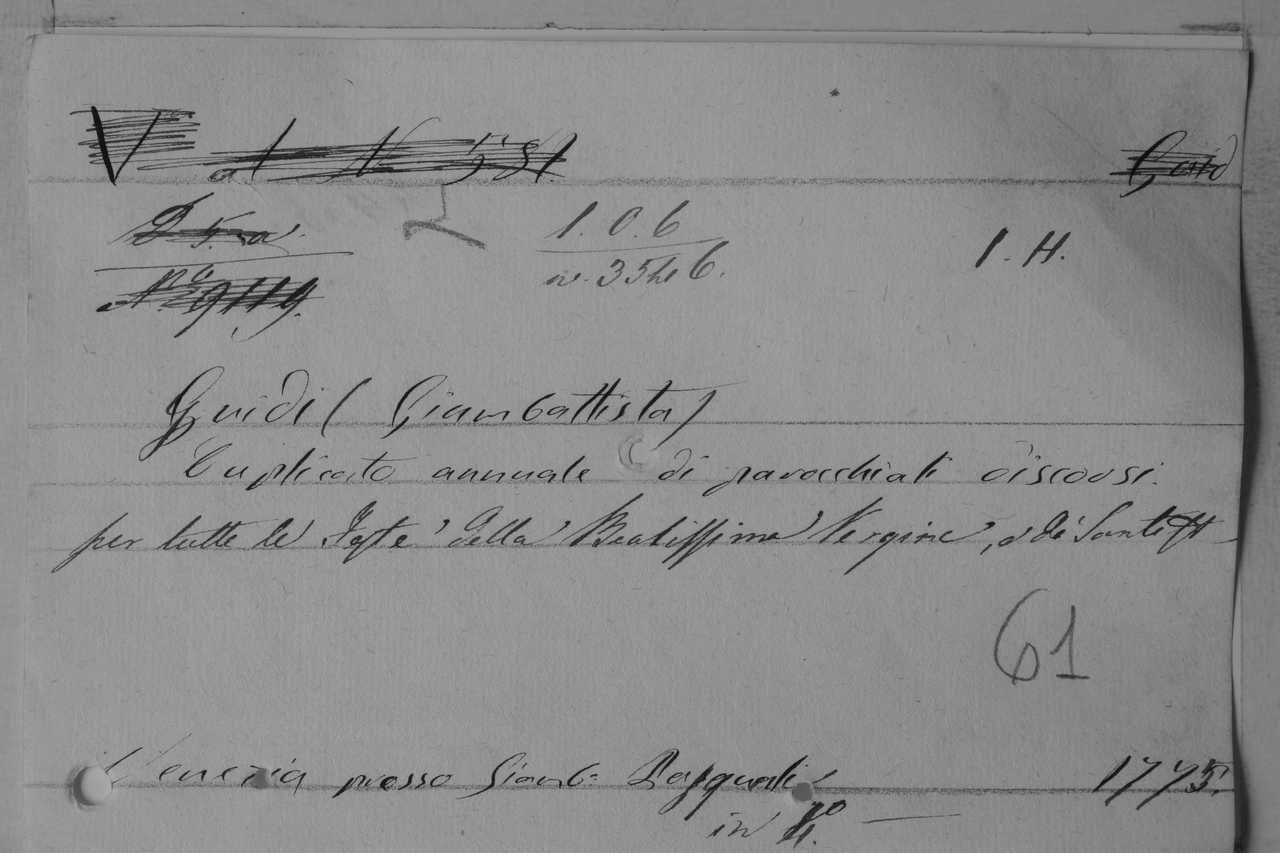 V
I. O. 6 I. H.
N.º 9119. n. 35426.
Guidi (Giambattista)
Duplicato annuale di parocchiali discorsi
per tutte le Feste della Beatissima Vergine, e de Santi
61
Venezia presso Giamb: Pasquali 1775.
in 4.º